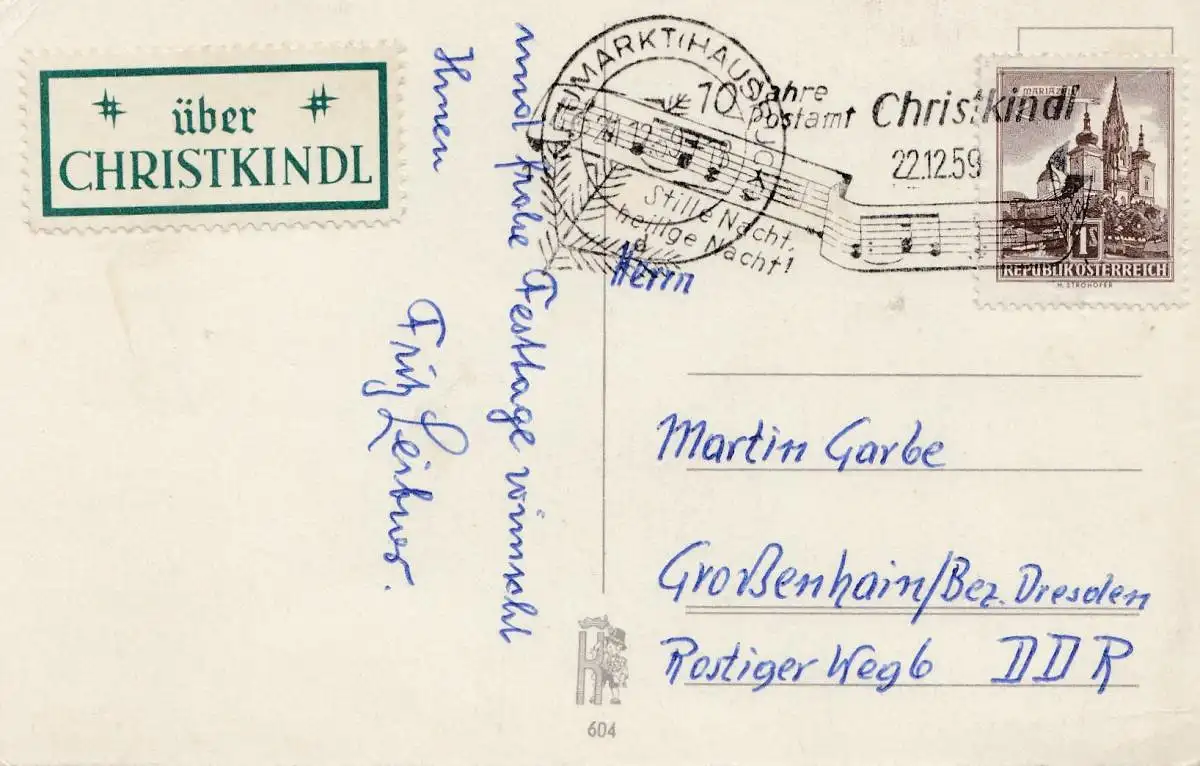 über
CHRISTKINDL
und frohe Festtage wünscht
Ihnen
Fritz Leitner.
MARKT HAUSRUCK
10 Jahre
Postamt Christkindl
22.12.59
Stille Nacht,
heilige Nacht!
MARIAZELL
1S
REPUBLIK ÖSTERREICH
H. STROHOFER
Herrn
Martin Garbe
Großenhain/Bez. Dresden
Rostiger Weg 6 DDR
H
604